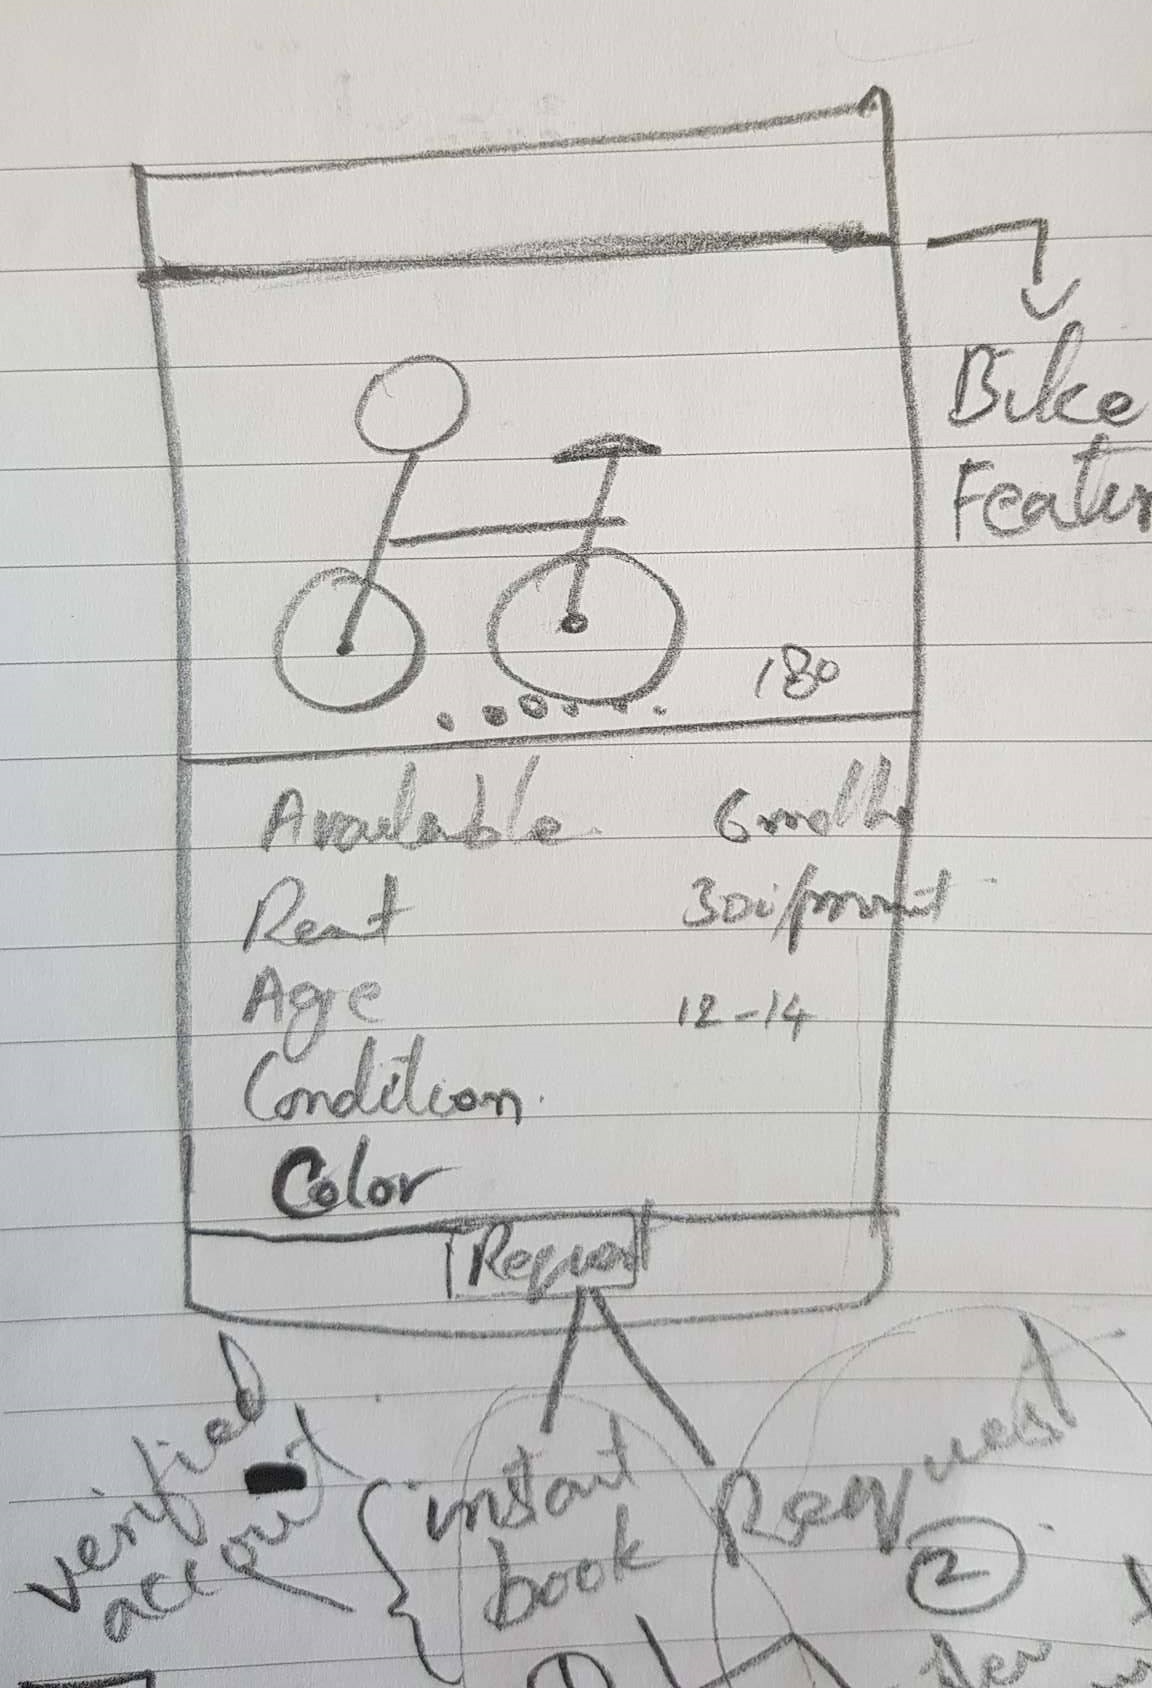 Bike
Featur
180
Available 6
Rent
Age 12-14
Condition
Color
Request
verified
account
instant
book
Request
2
1